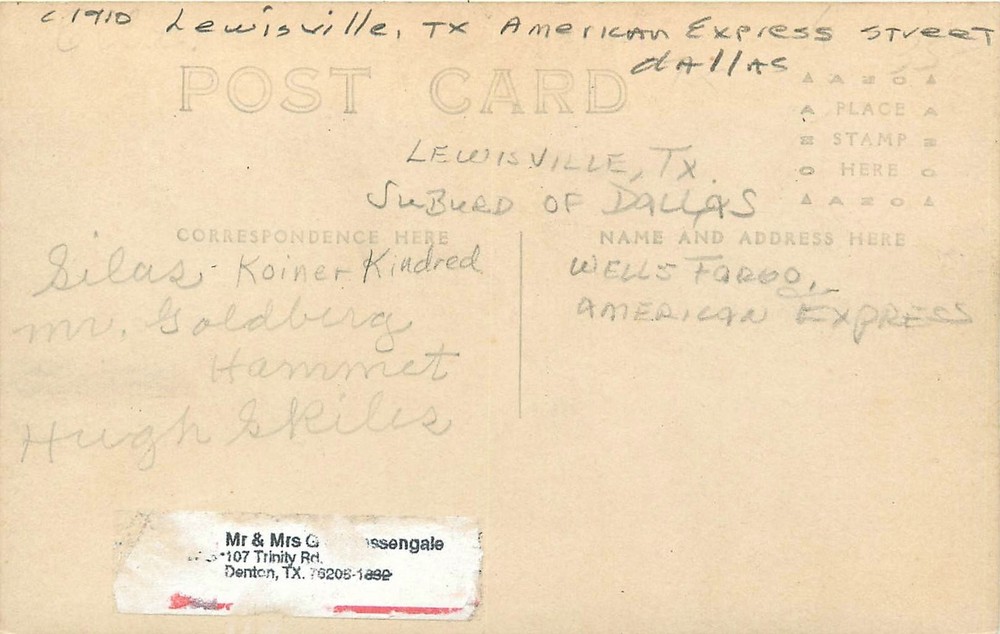 c 1910 Lewisville, TX American Express Street
dallas
POST CARD
PLACE
STAMP
HERE
LEWISVILLE, TX.
SuBURD OF DALLAS
CORRESPONDENCE HERE
NAME AND ADDRESS HERE
Silas - Koiner Kindred
WELLS FARGO,
Mr. Goldberg
AMERICAN EXPRESS
Hammet
Hugh Skiles
Mr & Mrs G ssengale
107 Trinity Rd.
Denton, TX.